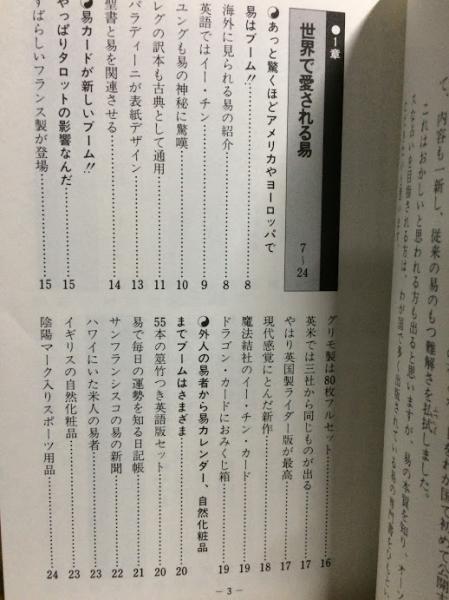 て、内容も一新し、従来の易のもつ難解さを払拭しました。
これはおかしいと思われる方も出ると思いますが、易の本質を知り、オーソ
●1章
世界で愛される易
7〜24
あっと驚くほどアメリカやヨーロッパで
易はブーム!!……8
海外に見られる易の紹介……8
英語ではイー・チン……9
ユングも易の神秘に驚嘆……10
レグの訳本も古典として通用……11
バラディーニが表紙デザイン……13
聖書と易を関連させる……14
易カードが新しいブーム!!……15
やっぱりタロットの影響なんだ……15
すばらしいフランス製が登場……15
グリモ製は80枚フルセット……16
英米では三社から同じものが出る……17
やはり英国製ライダー版が最高……17
現代感覚にとんだ新作……18
魔法結社のイー・チン・カード……19
ドラゴン・カードにおみくじ箱……19
外人の易者から易カレンダー、自然化粧品
までブームはさまざま……20
55本の筮竹つき英語版セット……20
易で毎日の運勢を知る日記帳……21
サンフランシスコの易の新聞……22
ハワイにいた米人の易者……23
イギリスの自然化粧品……23
陰陽マーク入りスポーツ用品……24
— 3 —